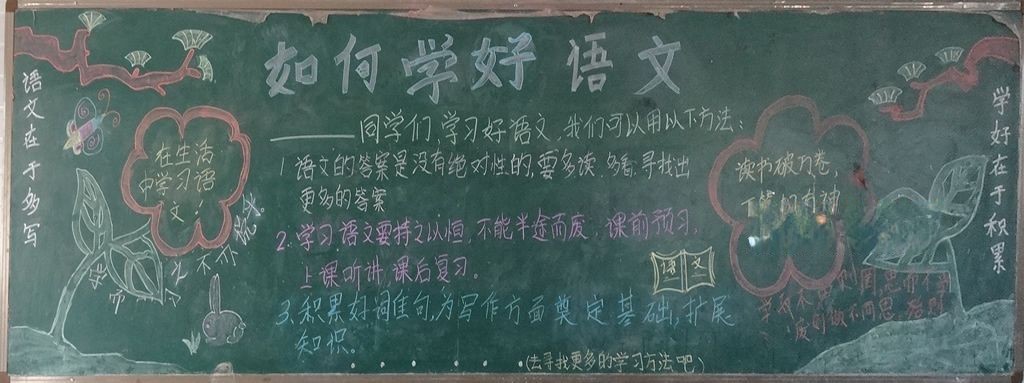 如何学好语文
语文在于多写
学好在于积累
——同学们,学习好语文,我们可以用以下方法:
在生活
中学习语
文!
1.语文的答案是没有绝对性的,要多读.多看.寻找出
更多的答案
2.学习语文要持之以恒,不能半途而废,课前预习,
上课听讲,课后复习。
3.积累好词佳句,为写作方面奠定基础,扩展
知识。
读书破万卷,
下笔如有神
语文
(去寻找更多的学习方法吧)